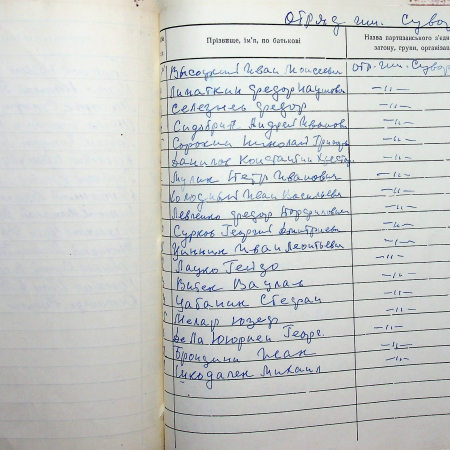 Отряд им. Суво
Прізвище, ім'я, по батькові
Назва партизанського з'єдн
загону, групи, організац
Высоцкий Иван Моисеевич отр. им. Сувор
Липаткин Федор Наумович —"—
Селезнев Федор —"—
Андрей Иванови —"—
Сорокин Николай Григорь —"—
Данилов Константин Христо —"—
Мулик Петр Иванович —"—
Колодный Иван Васильевич —"—
Левченко Федор —"—
Сурков Георгий Дмитриеви —"—
Циник Иван Леонтьевич —"—
Лацко Гейзо —"—
Витек Вацлав —"—
Цабаник Стефан —"—
Юзеф —"—
Де Ла Георг. —"—
Брондини Иван —"—
Шкодачек Михаил